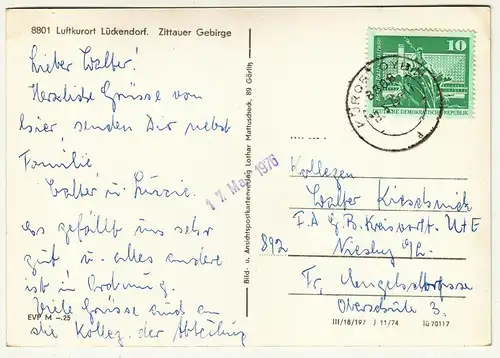 8801 Luftkurort Lückendorf. Zittauer Gebirge
Lieber Walter!
Herzliche Grüsse von
hier, senden Dir nebst
Familie
Walter u.
es gefällt uns sehr
gut u. alles andere
ist in Ordnung.
Viele Grüsse auch an
die Kolleg. der Abteilung
EVP M –.25
17. Mai 1976
Bild- u. Ansichtspostkartenverlag Lothar Mattuscheck, 89 Görlitz
10
DEUTSCHE DEMOKRATISCHE REPUBLIK
KURORT OYBIN
Kollegen
Walter
892 Niesky
Fr.
Oberschule 3
III/18/197 J 11/74 Lü 70117